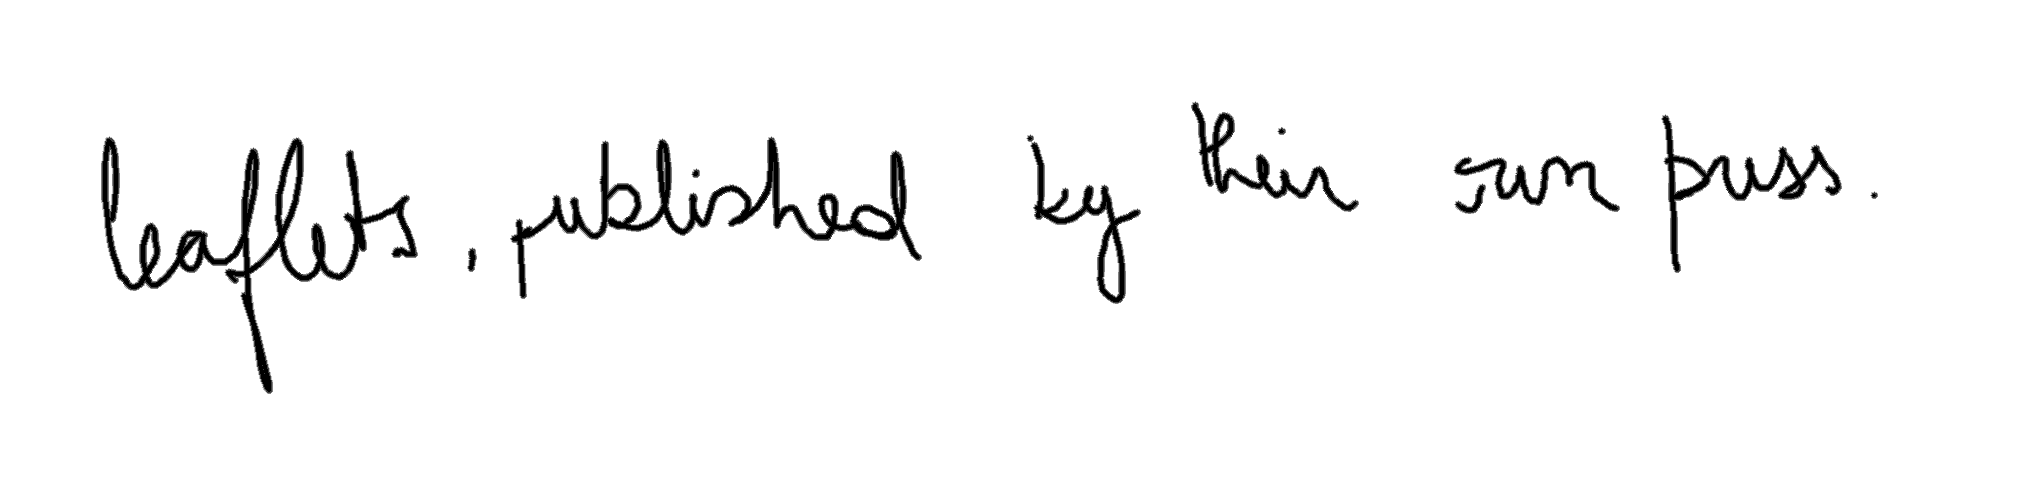 leaflets, published by their own press.